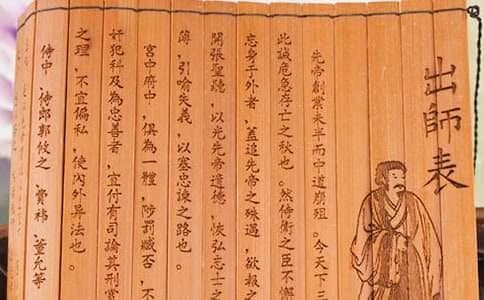 出師表
先帝創業未半而中道崩殂。今天下三
此誠危急存亡之秋也。然侍衛之臣不懈
忘身于外者,蓋追先帝之殊遇,欲報之
開張聖聽,以光先帝遺德,恢弘志士之
薄,引喻失義,以塞忠諫之路也。
宮中府中,俱為一體,陟罰臧否,不
奸犯科及為忠善者,宜付有司論其刑賞
之理,不宜偏私,使內外異法也。
侍中、侍郎郭攸之、費禕、董允等